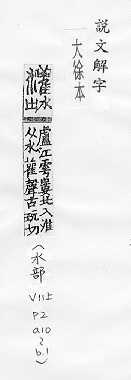 說文解字
大徐本
灌水出
廬江雩婁北入淮
从水雚聲古玩切
(水部 V11上 P2 a10~b.1)